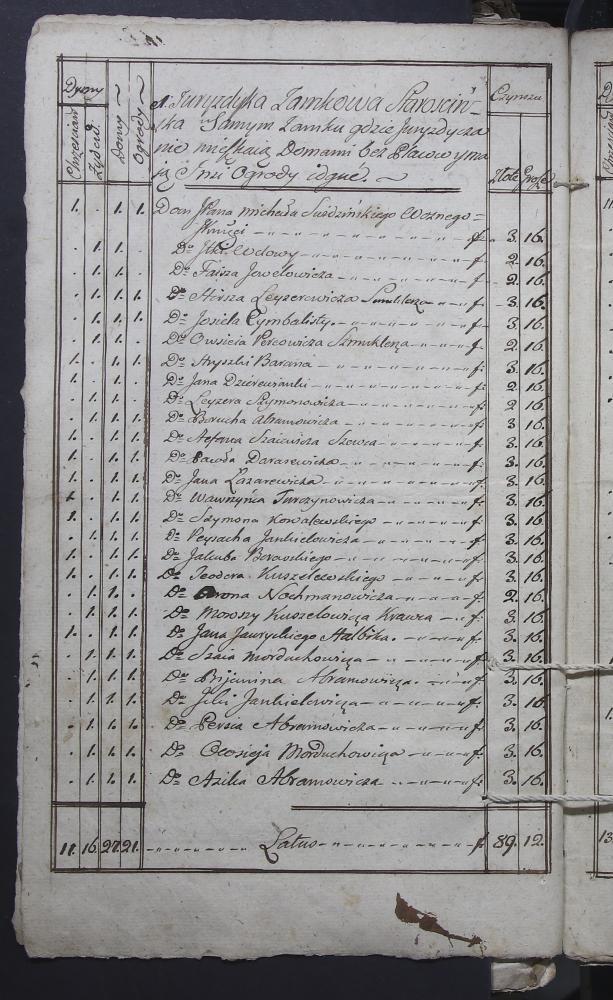 Dymy
Chrześcian
Żydow.
Domy
Ogrody
Czynszu
Złote Grosze
A. Juryzdyka Zamkowa Starościn-
ska w Samym Zamku gdzie Juryzdycza
nie mieszkaią Domami bez Placow yma
ią Inszi Ogrody idque.
1. . 1. 1. Dom Jana Michała woznego =
f. 3. 16.
. 1. 1. . Do Wdowy f. 2. 16.
. 1. 1. . Do Faisza Jowelowicza f. 2. 16.
. 1. 1. 1. Do Hirsza Leyzerowicza f. 3. 16.
. 1. 1. 1. Do Josiela Cymbalisty. f. 3. 16.
. 1. 1. . Do Owsieia Percowicza Szmuklerza f. 2. 16.
1. . 1. 1. Do Hryszki Barana f. 3. 16.
1. . 1. . Do Jana f. 2. 16.
. 1. 1. . Do Leyzera Szymonowicza f. 2 16.
. 1. 1. 1. Do Borucha Abramowicza f. 3 16.
1. . 1. 1. Do Szewca f. 3. 16.
1. . 1. 1. Do Pawła Darasewicza f. 3. 16.
1. . 1. 1. Do Jana Łazarewicza f. 3. 16.
1. . 1. 1. Do Wawrzyńca Turczynowicza f. 3. 16.
1. . 1. 1. Do Szymona Kowalewskiego f. 3. 16.
. 1. 1. 1. Do Peysacha Jankielowicza f. 3. 16.
1. . 1. 1. Do Jakuba f. 3. 16.
1. . 1. 1. Do Teodora Kuszelewskiego f. 3. 16.
. 1. 1. . Do Arona Nochmanowicza f. 2. 16.
. 1. 1. 1. Do Moroszy Kuszelowicza Krawca f. 3. 16.
1. . 1. 1. Do Jana f. 3. 16.
. 1. 1. 1. Do Szaia Morduchowicza f. 3. 16.
. 1. 1. 1. Do Bijamina Abramowicza. f. 3. 16.
. 1. 1. 1. Do Jankielowicza f. 3. 16.
. 1. 1. 1. Do Persia Abramowicza f. 3. 16.
. 1. 1. 1. Do Owsieja Morduchowicza f. 3. 16.
. 1. 1. 1. Do Azika Abramowicza f. 3. 16.
11. 16. 27. 21. Latus f. 89. 12.